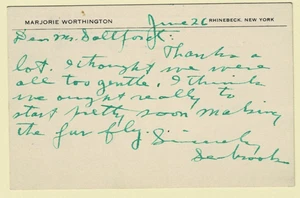 MARJORIE WORTHINGTON
June 26 RHINEBECK, NEW YORK
Dear Mr.
Thanks a
lot. I thought we were
all too gentle. I think
we ought really to
start pretty soon making
the fur fly.
Sincerely
Seabrook